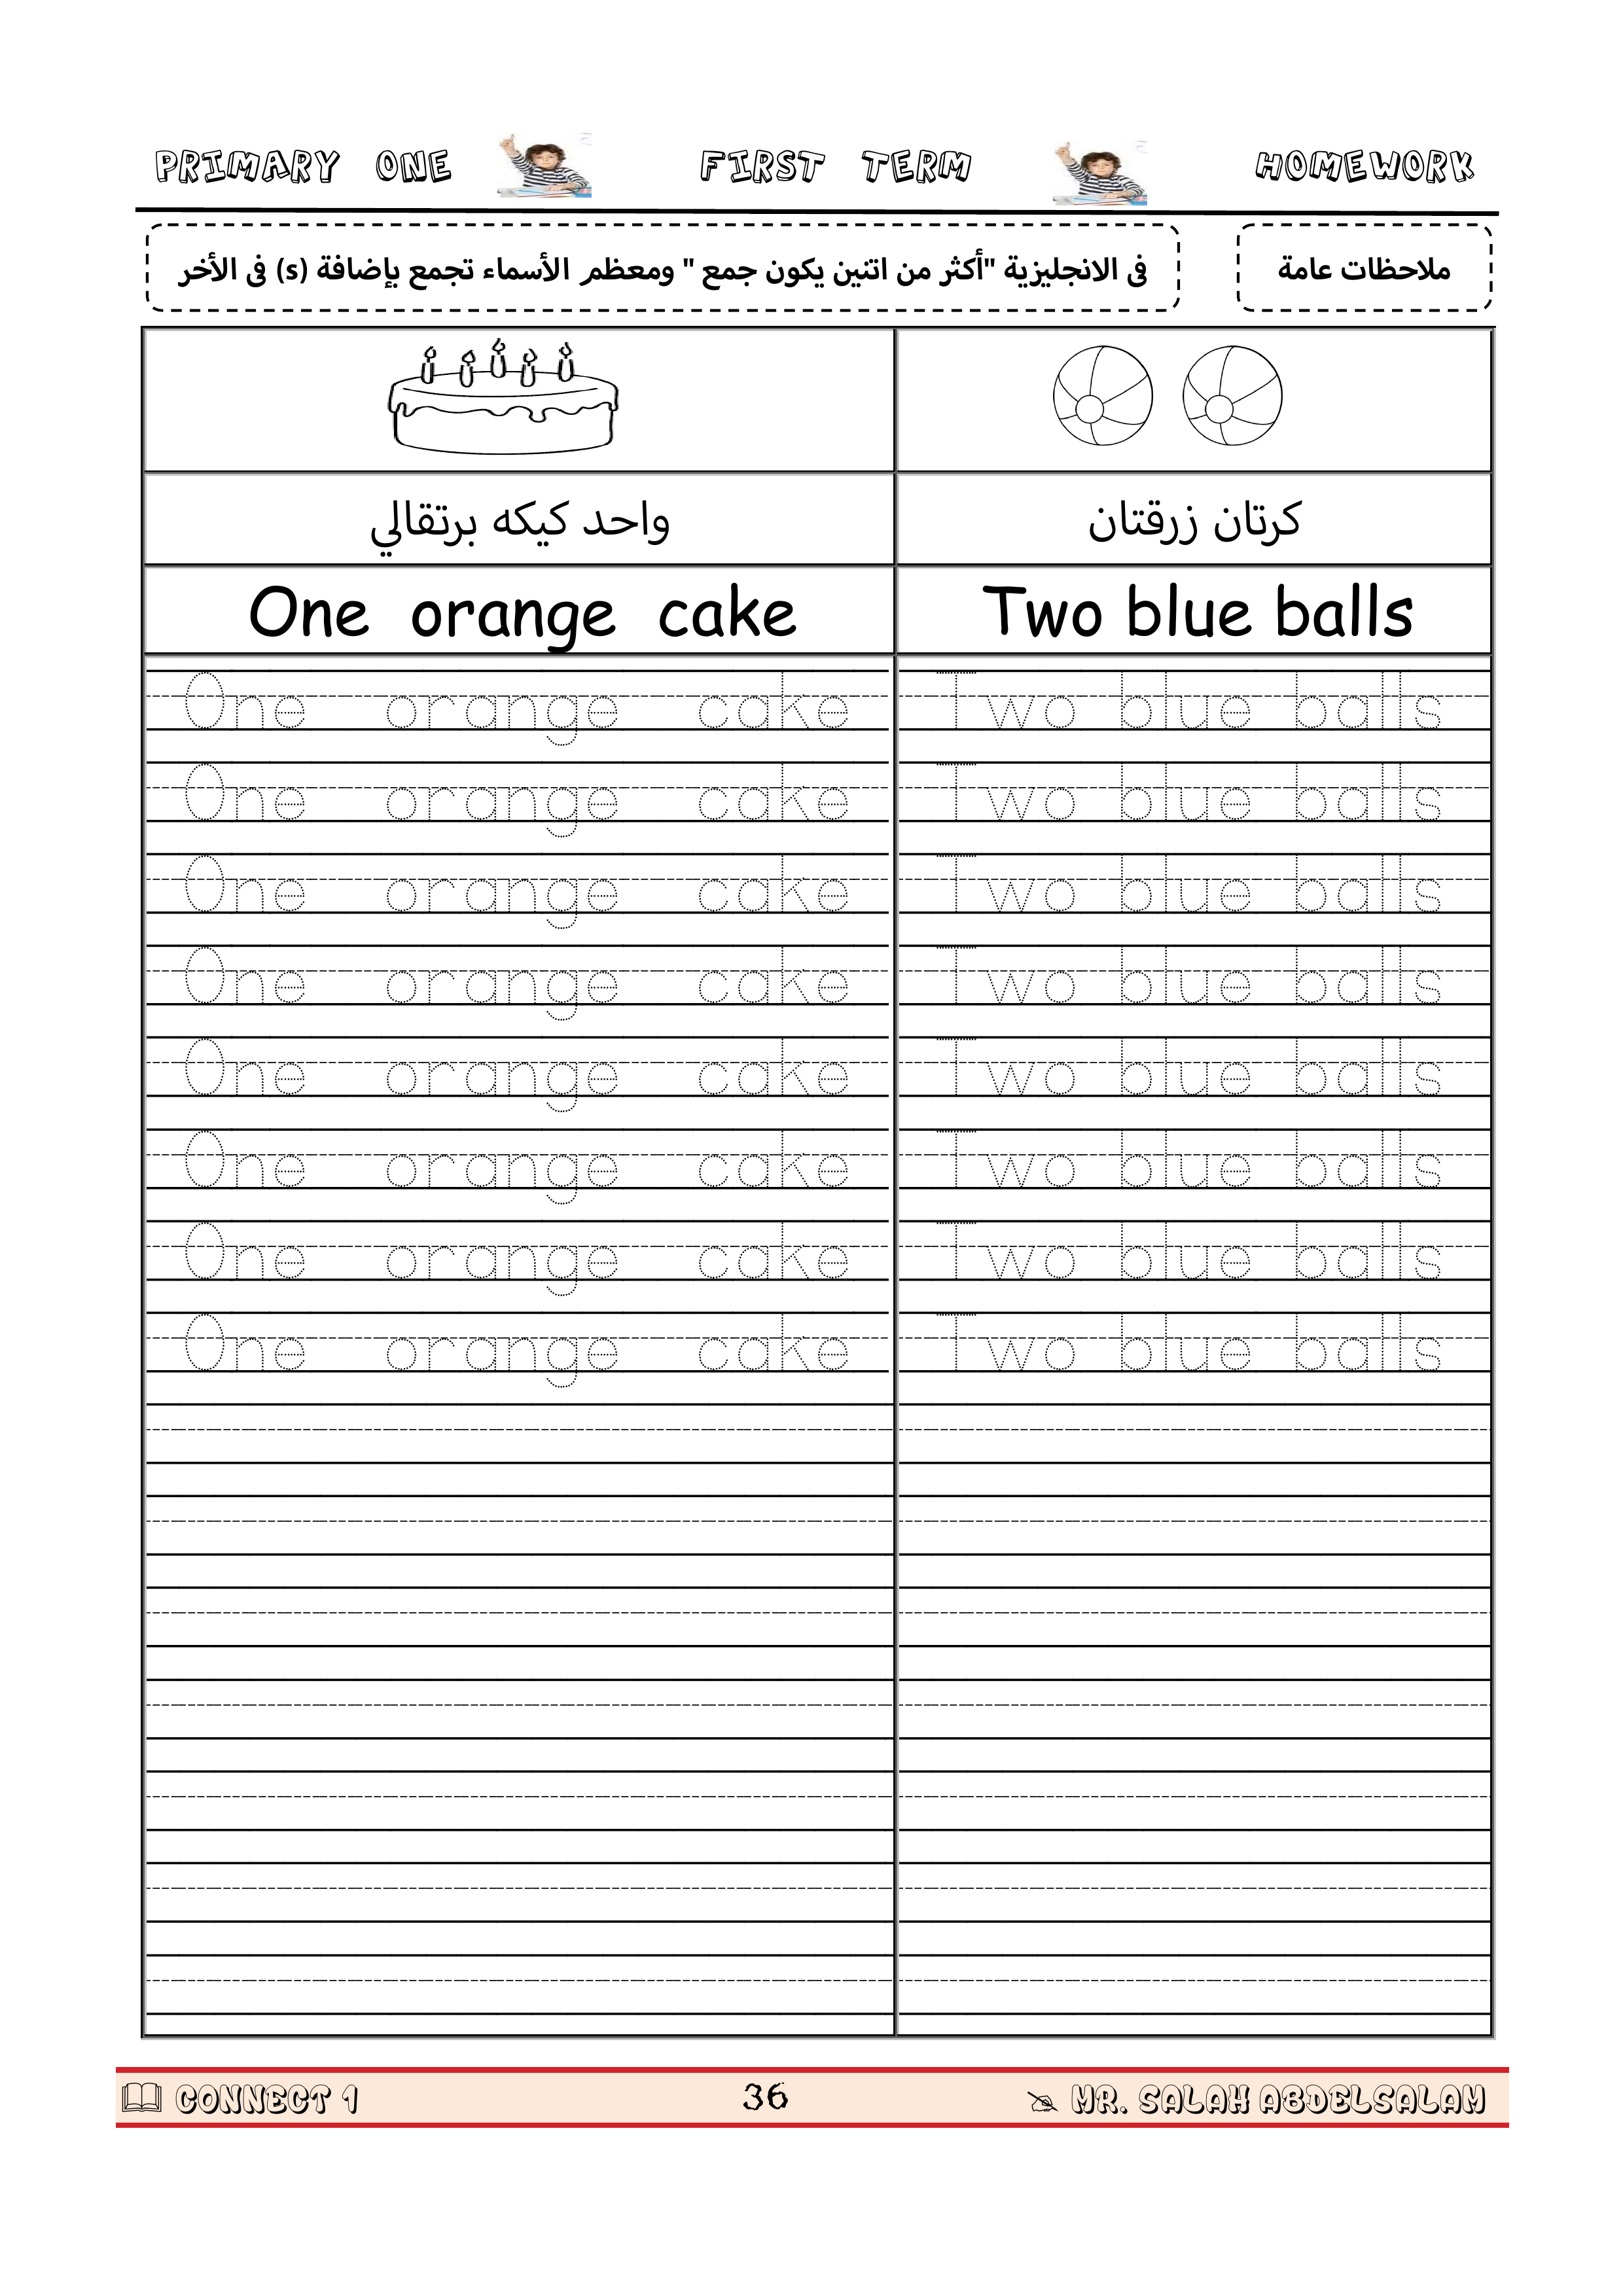 PRIMARY ONE FIRST TERM HOMEWORK
ملاحظات عامة
فى الانجليزية "أكثر من اتنين يكون جمع " ومعظم الأسماء تجمع بإضافة (s) فى الأخر
واحد كيكه برتقالي كرتان زرقتان
One orange cake Two blue balls
One orange cake Two blue balls
One orange cake Two blue balls
One orange cake Two blue balls
One orange cake Two blue balls
One orange cake Two blue balls
One orange cake Two blue balls
One orange cake Two blue balls
One orange cake Two blue balls
CONNECT 1 36 MR. SALAH ABDELSALAM